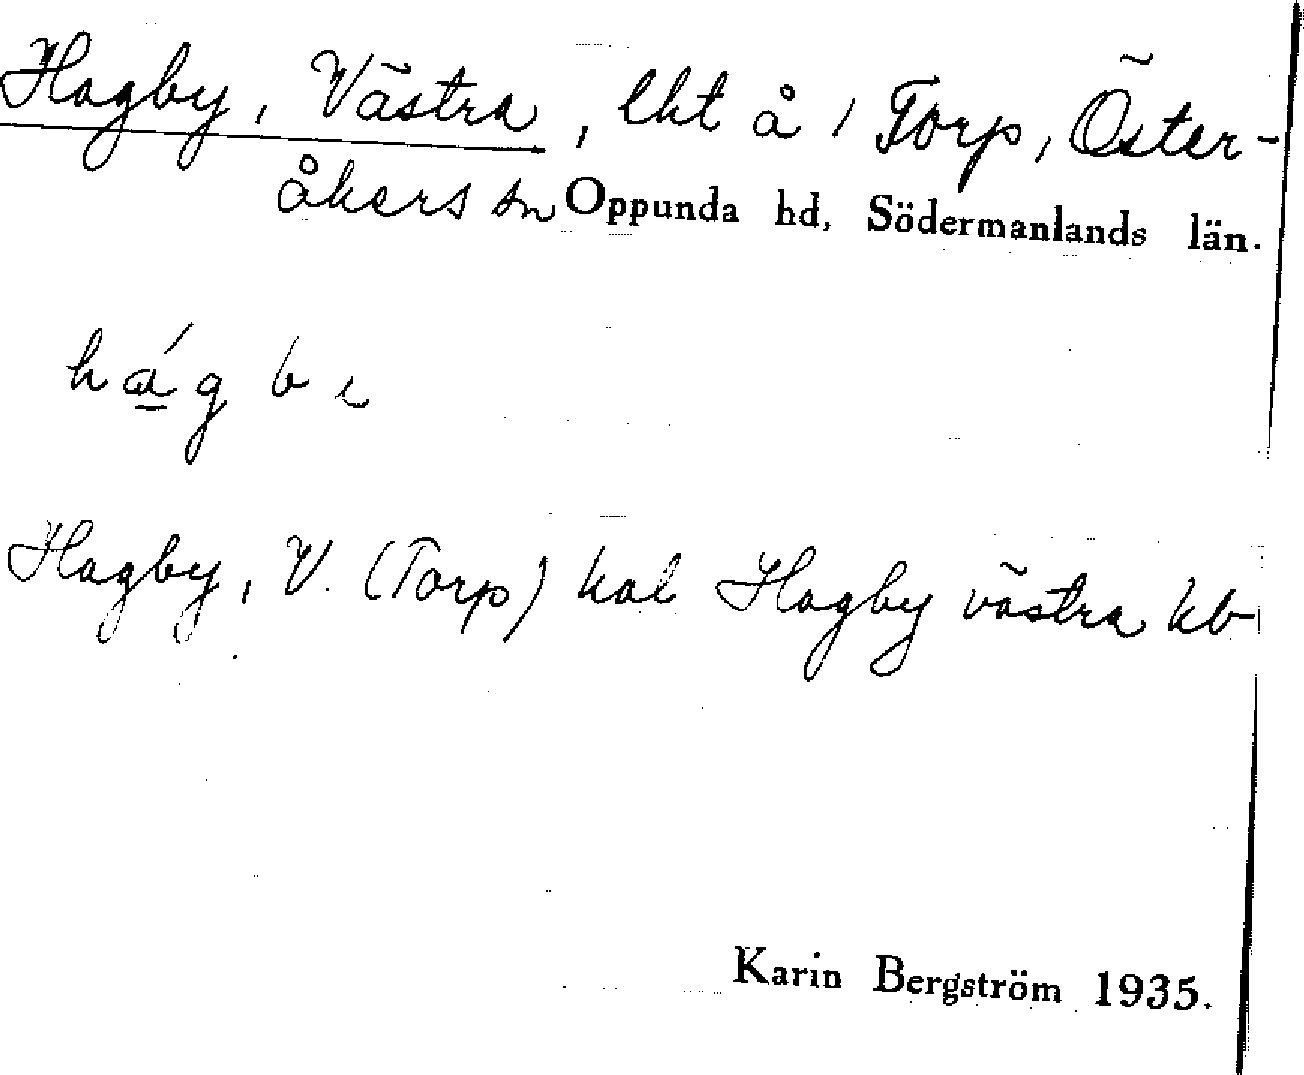 Hagby, Västra, lht å 1 Torp, Öster-
åkers sn Oppunda hd, Södermanlands län.
há̱g b ɩ
Hagby, V. (Torp) hal Hagby västra kb
Karin Bergström 1935.